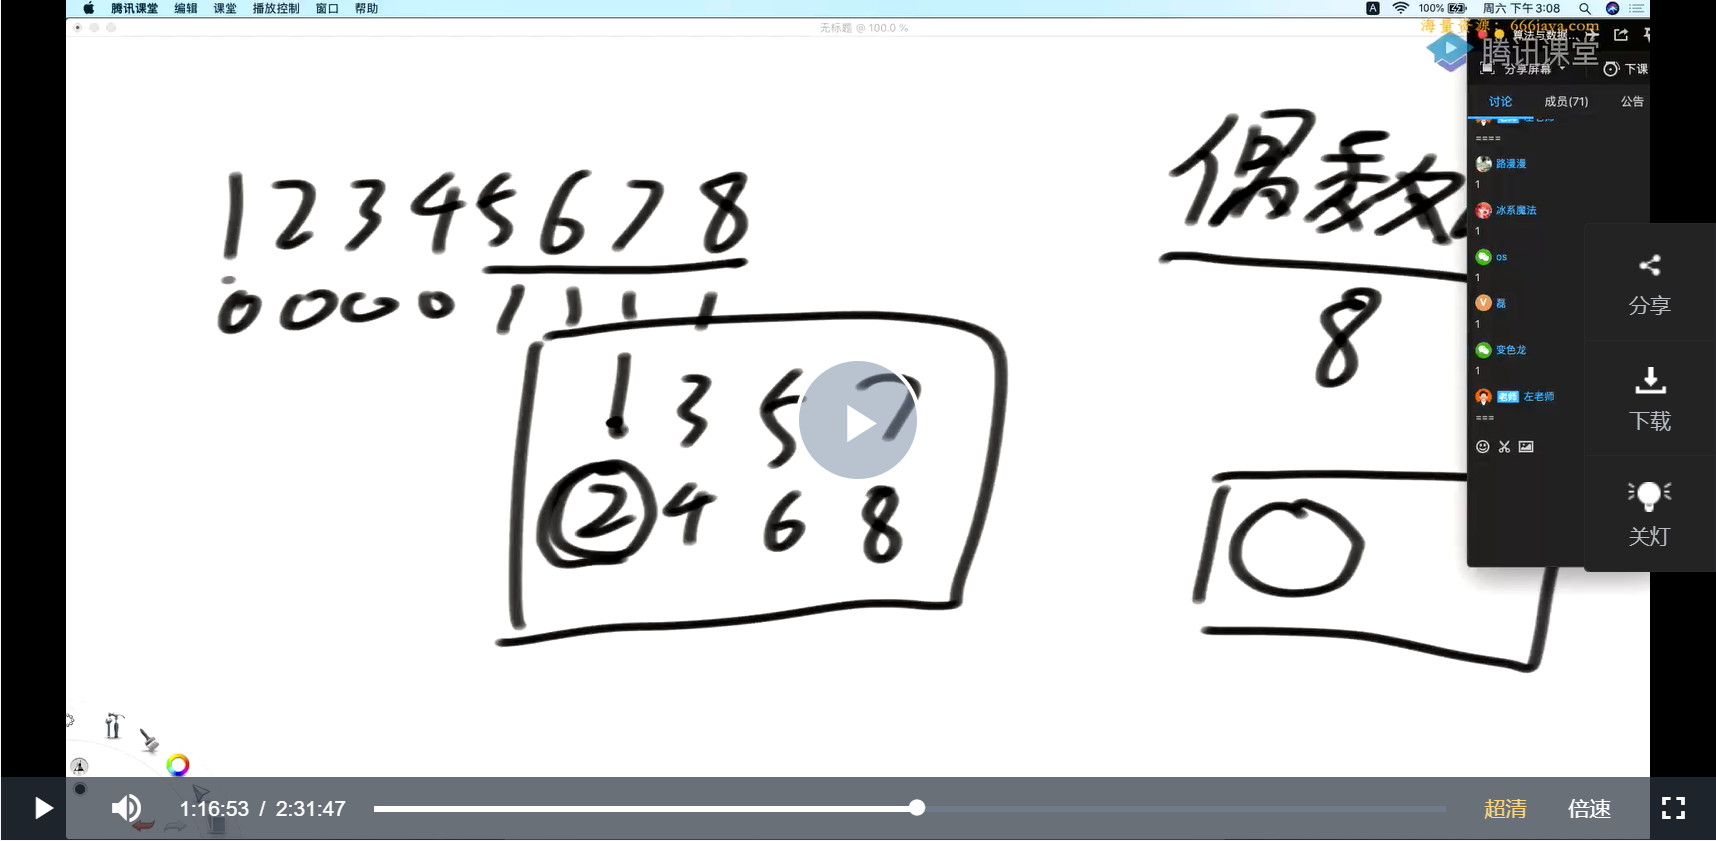 腾讯课堂 编辑 课堂 播放控制 窗口 帮助
A 100% 周六 下午3:08
无标题 @ 100.0 %
海量资源：666java.com
算法与数据...
腾讯课堂
分享屏幕 下课
讨论 成员(71) 公告
====
路漫漫
1
冰系魔法
1
os
1
V 磊
1
变色龙
1
老师 左老师
===
1 2 3 4 5 6 7 8
0 0 0 0 1 1 1 1
1 3 5 7
2 4 6 8
偶数
8
分享
下载
关灯
1:16:53 / 2:31:47
超清 倍速